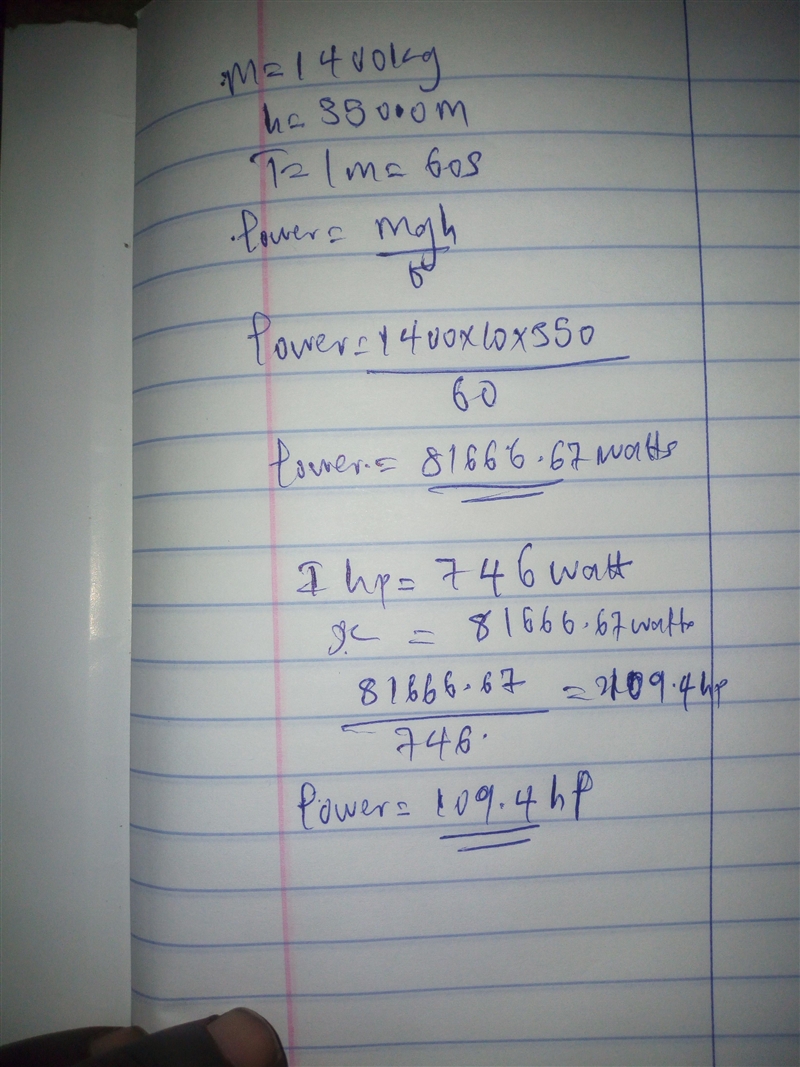 M=1400kg
h=350.0m
T=1m=60s
Power= mgh
t
Power=1400x10x350
60
Power.= 81666.67 watts
1 hp= 746 watt
x = 81666.67 watts
81666.67 = 109.4 hp
746.
Power= 109.4 hp